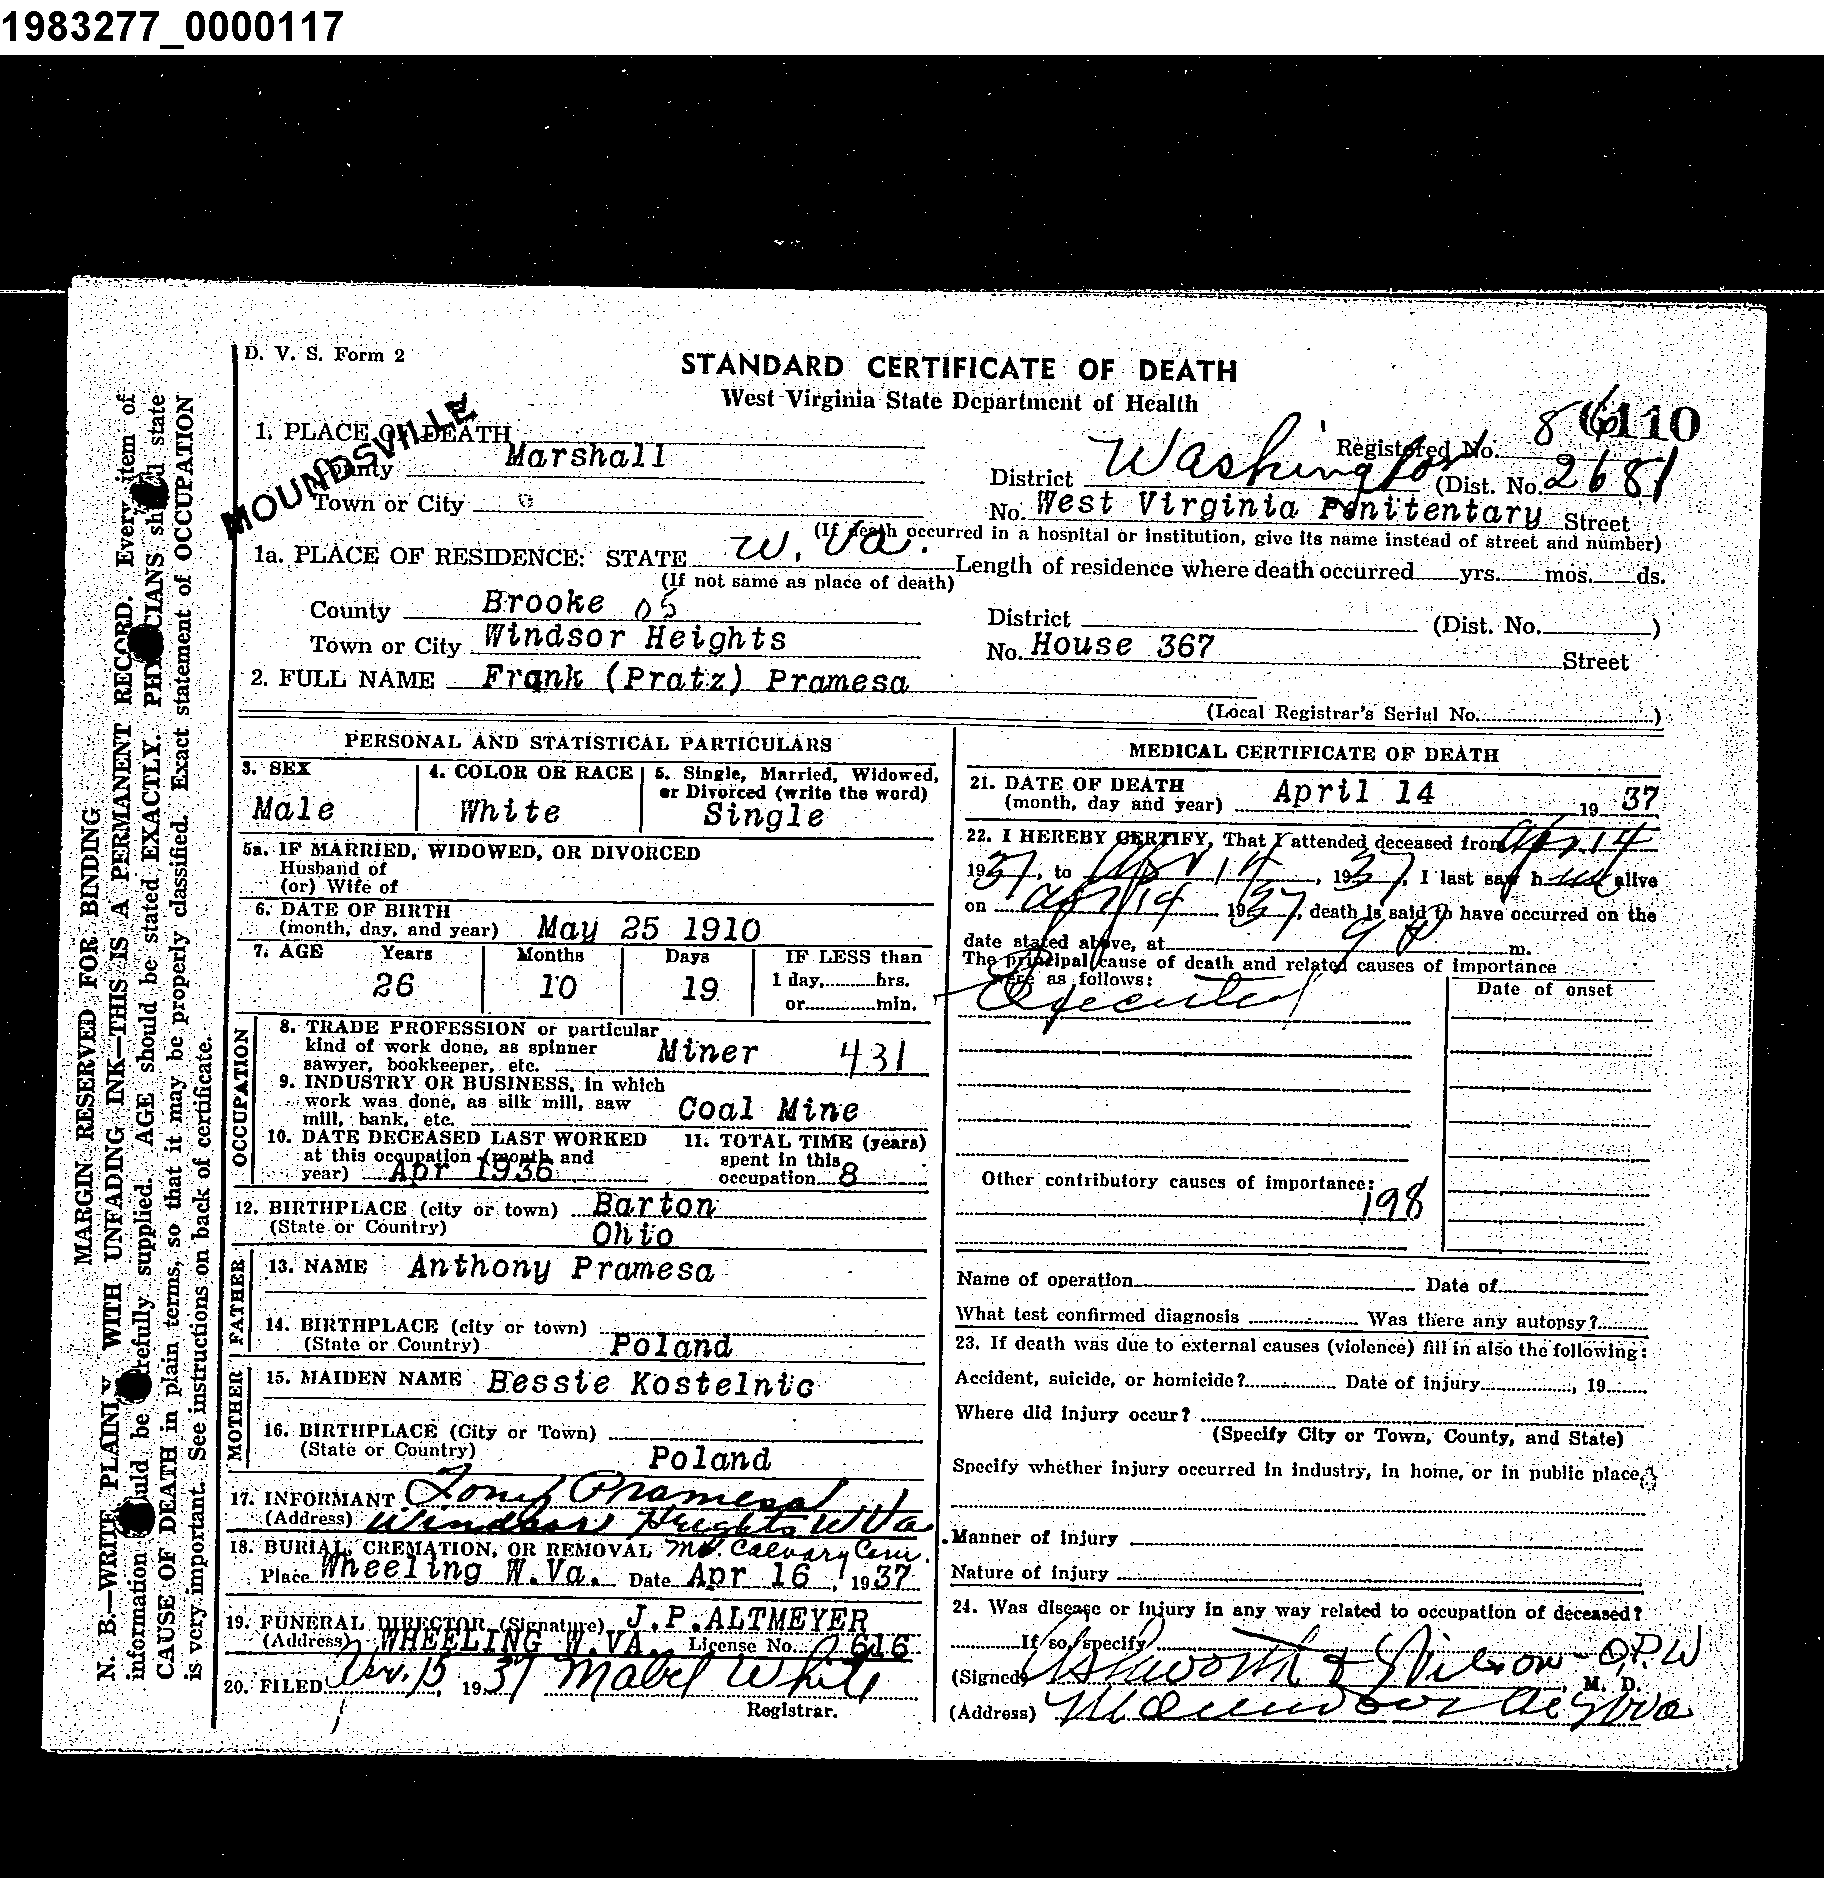 1983277_0000117
D. V. S. Form 2
STANDARD CERTIFICATE OF DEATH
West Virginia State Department of Health
6110
1. PLACE OF DEATH
Registered No. 86
County Marshall
District Washington (Dist. No. 2681
MOUNDSVILLE
Town or City
No. West Virginia Penitentary Street
(If death occurred in a hospital or institution, give its name instead of street and number)
1a. PLACE OF RESIDENCE: STATE W. Va.
(If not same as place of death)
Length of residence where death occurred yrs. mos. ds.
County Brooke 05
District (Dist. No. )
Town or City Windsor Heights
No. House 367 Street
2. FULL NAME Frank (Pratz) Pramesa
(Local Registrar's Serial No. )
PERSONAL AND STATISTICAL PARTICULARS
3. SEX
Male
4. COLOR OR RACE
White
5. Single, Married, Widowed,
or Divorced (write the word)
Single
5a. IF MARRIED, WIDOWED, OR DIVORCED
Husband of
(or) Wife of
6. DATE OF BIRTH
(month, day, and year) May 25 1910
7. AGE Years Months Days IF LESS than
26 10 19 1 day, hrs.
or min.
OCCUPATION
8. TRADE PROFESSION or particular
kind of work done, as spinner
sawyer, bookkeeper, etc. Miner 431
9. INDUSTRY OR BUSINESS, in which
work was done, as silk mill, saw
mill, bank, etc. Coal Mine
10. DATE DECEASED LAST WORKED
at this occupation (month and
year) Apr 1936
11. TOTAL TIME (years)
spent in this
occupation 8
12. BIRTHPLACE (city or town) Barton
(State or Country) Ohio
FATHER
13. NAME Anthony Pramesa
14. BIRTHPLACE (city or town)
(State or Country) Poland
MOTHER
15. MAIDEN NAME Bessie Kostelnic
16. BIRTHPLACE (City or Town)
(State or Country) Poland
17. INFORMANT Tony Pramesa
(Address) Windsor Heights W Va
18. BURIAL, CREMATION, OR REMOVAL Mt. Calvary Cem.
Place Wheeling W.Va. Date Apr 16, 1937
19. FUNERAL DIRECTOR (Signature) J.P. ALTMEYER
(Address) WHEELING W.VA. License No. 616
20. FILED Apr. 15, 1937 Mabel White
Registrar.
MEDICAL CERTIFICATE OF DEATH
21. DATE OF DEATH
(month, day and year) April 14 19 37
22. I HEREBY CERTIFY, That I attended deceased from Apr. 14
1937, to Apr 14, 1937, I last saw him alive
on Apr 14 1937, death is said to have occurred on the
date stated above, at 9 P m.
The principal cause of death and related causes of importance
were as follows:
Date of onset
Executed
Other contributory causes of importance:
198
Name of operation Date of
What test confirmed diagnosis Was there any autopsy?
23. If death was due to external causes (violence) fill in also the following:
Accident, suicide, or homicide? Date of injury , 19
Where did injury occur?
(Specify City or Town, County, and State)
Specify whether injury occurred in industry, in home, or in public place.
Manner of injury
Nature of injury
24. Was disease or injury in any way related to occupation of deceased?
If so, specify
(Signed) Ashworth & Wilson - O.P.W
M. D.
(Address) Moundsville W Va
MARGIN RESERVED FOR BINDING
N. B.—WRITE PLAINLY WITH UNFADING INK—THIS IS A PERMANENT RECORD. Every item of
information should be carefully supplied. AGE should be stated EXACTLY. PHYSICIANS should state
CAUSE OF DEATH in plain terms, so that it may be properly classified. Exact statement of OCCUPATION
is very important. See instructions on back of certificate.